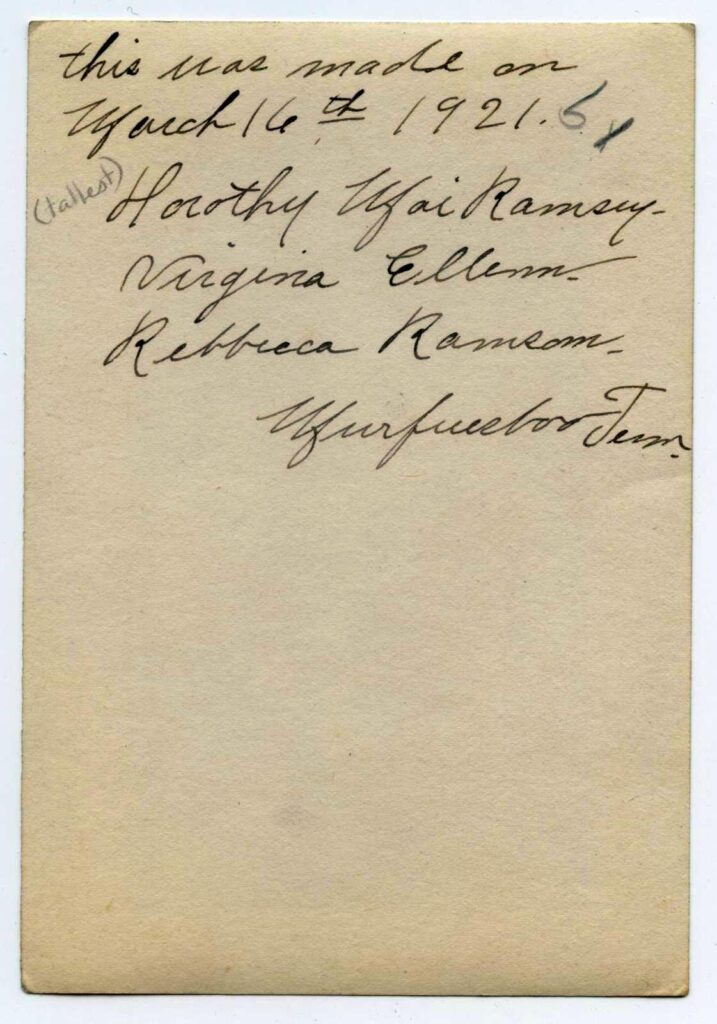 this was made on
March 16th 1921. 5
(tallest)
Dorothy Mai Ramsey-
Virgina Ellenn-
Rebbecca Ramsom-
Murfuesboo Tenn.